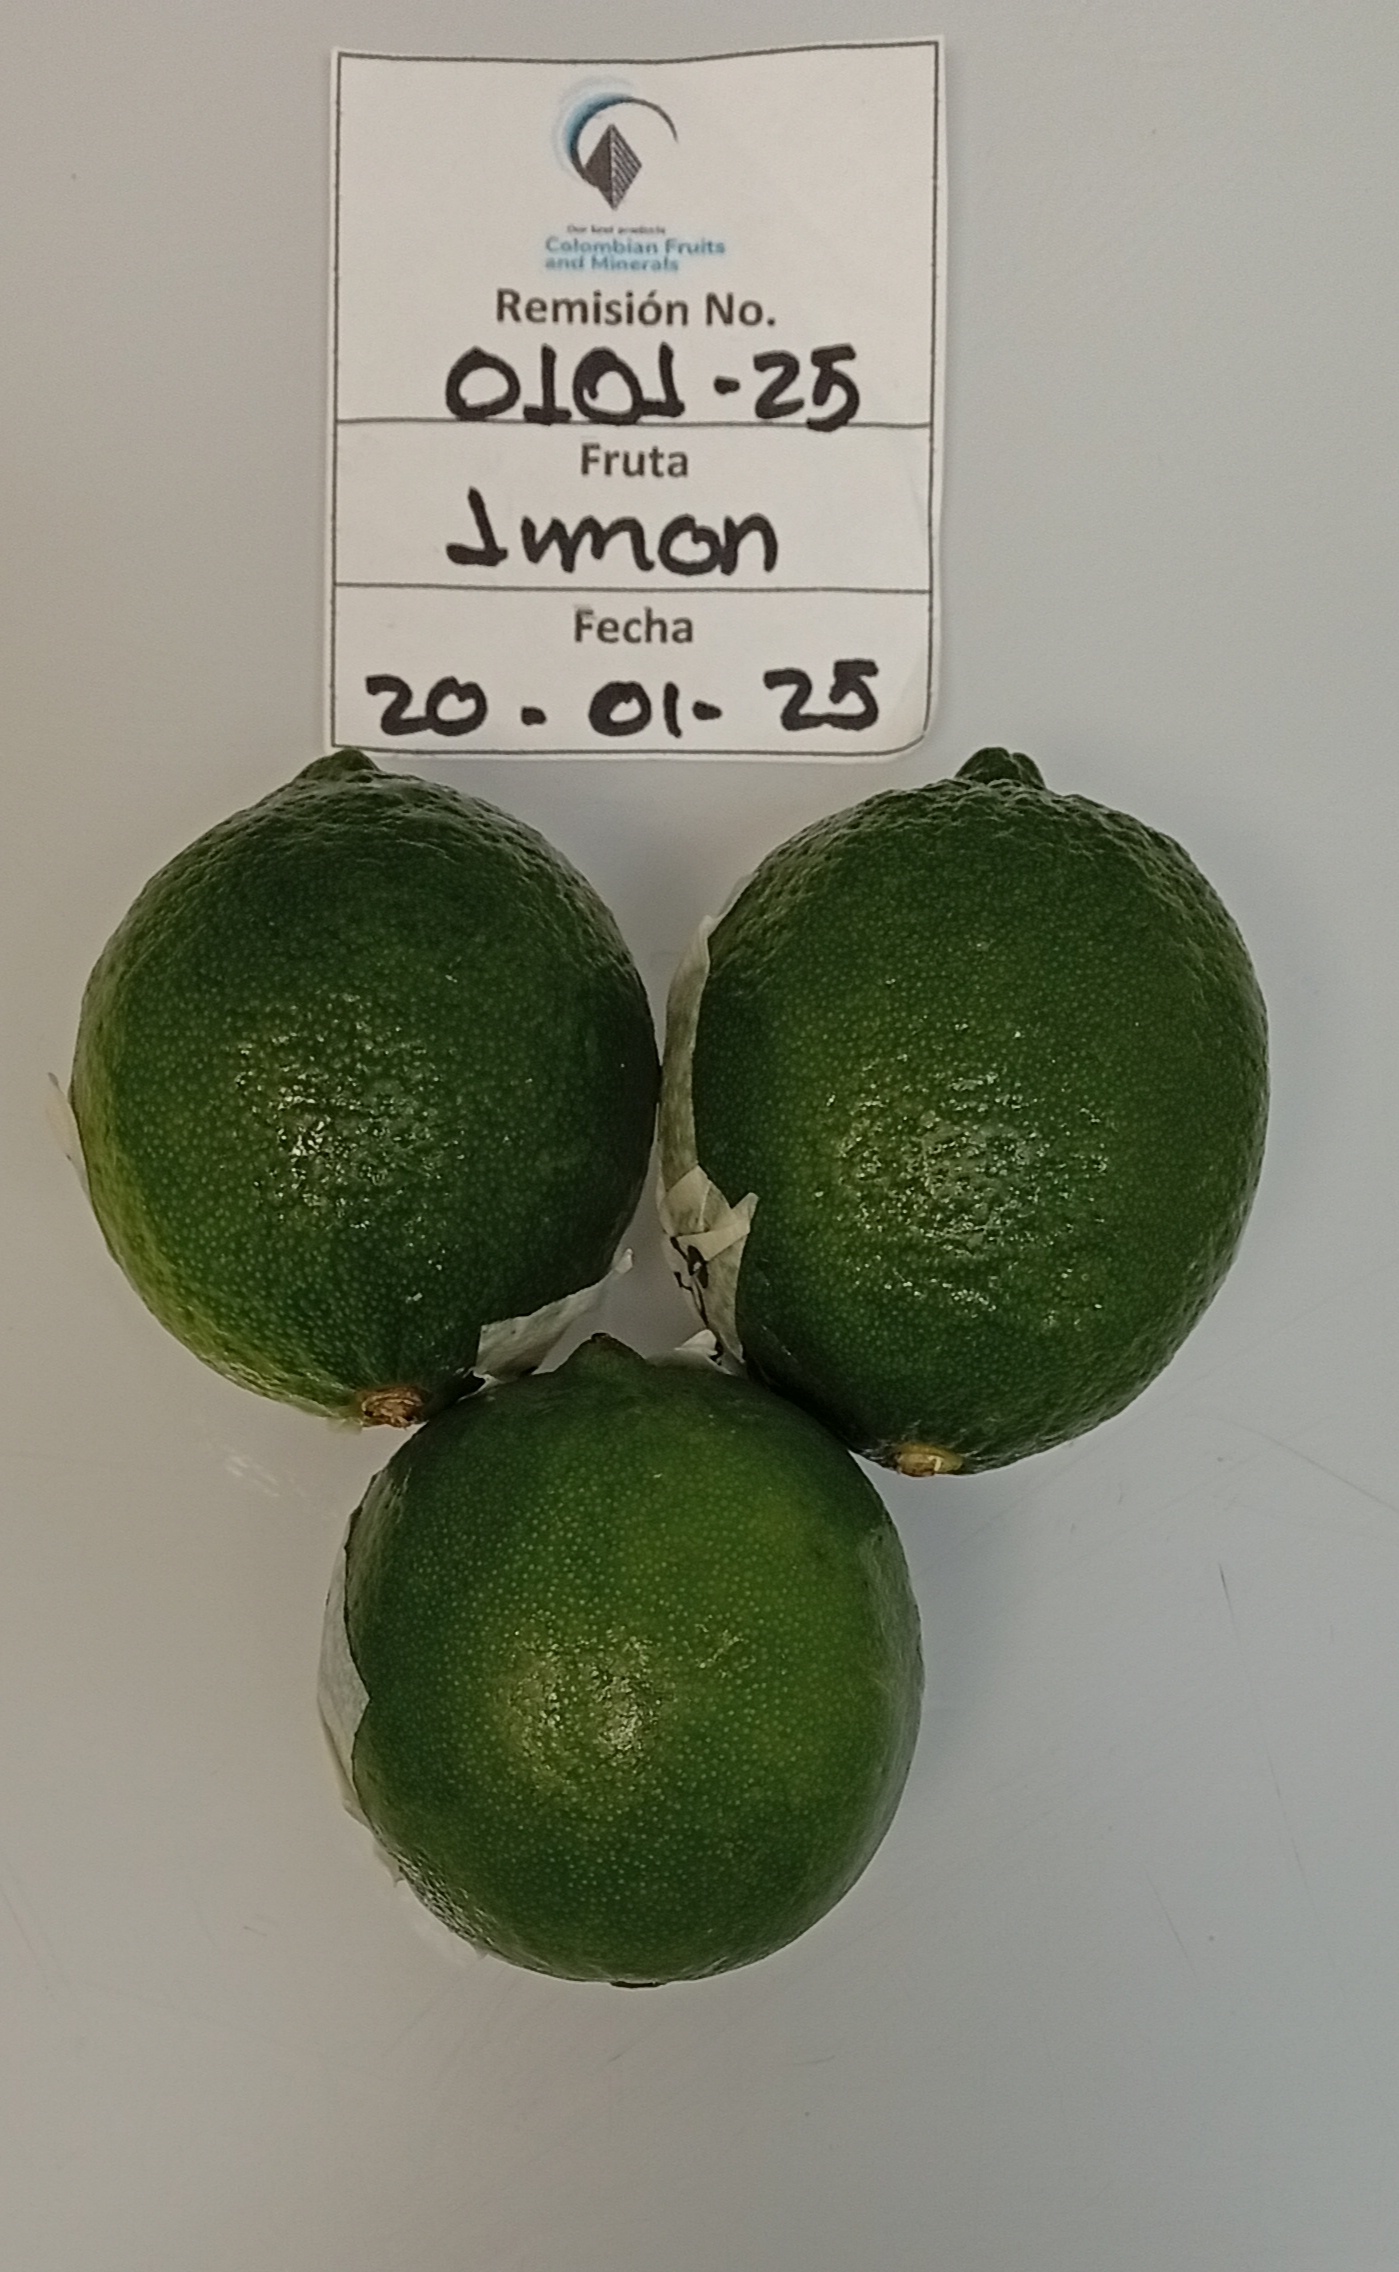 Our best products
Colombian Fruits
and Minerals
Remisión No.
0101-25
Fruta
Limon
Fecha
20-01-25